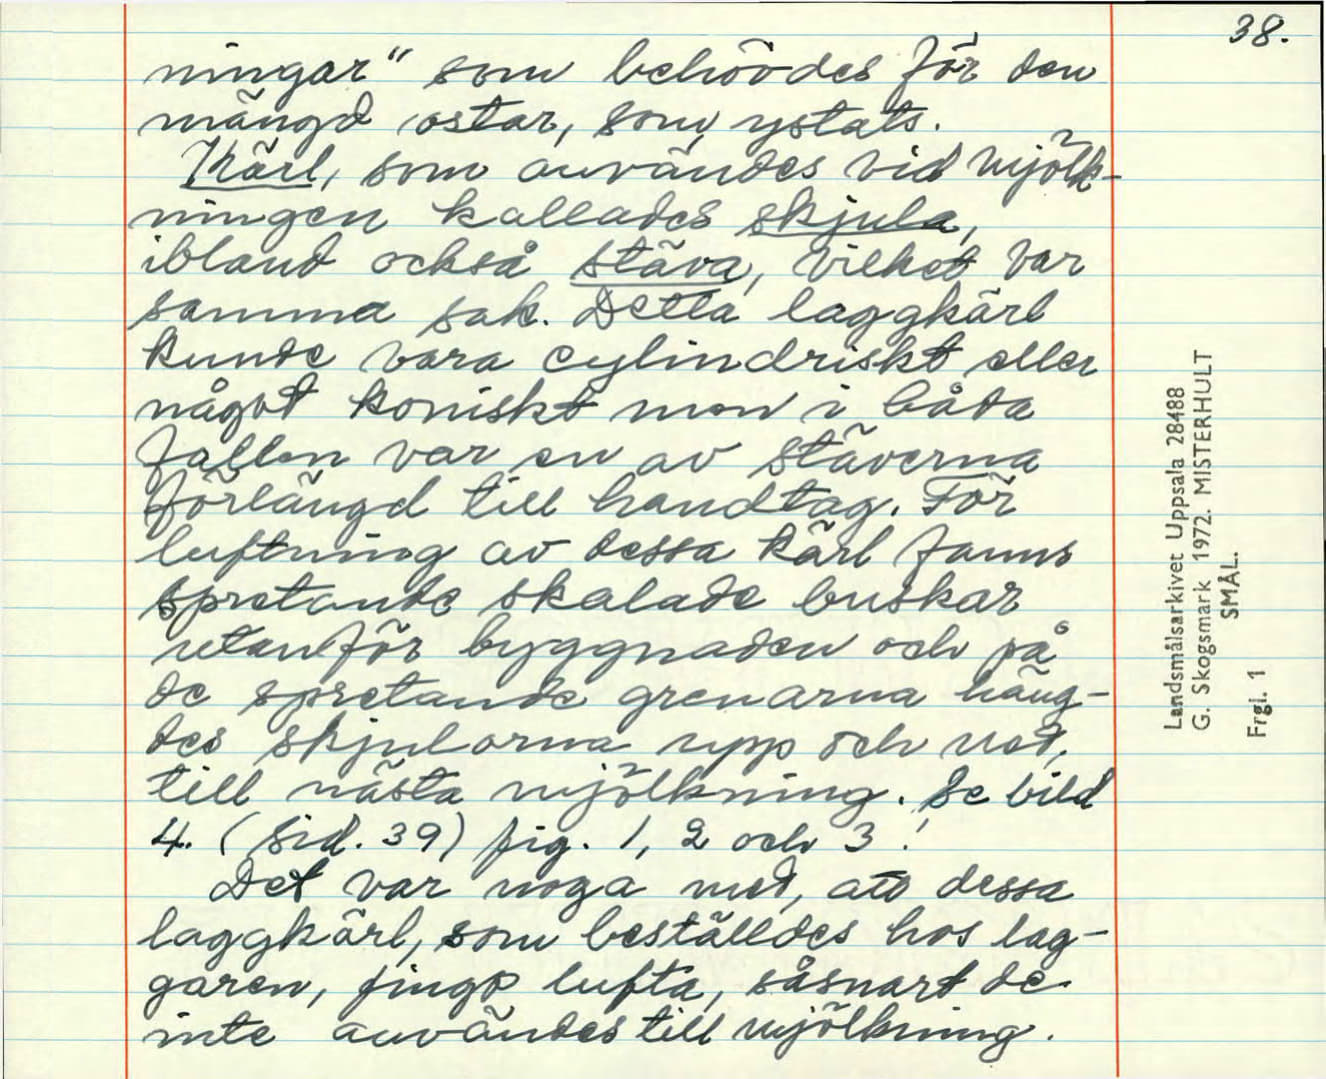 38.
ningar" som behövdes för den
mängd ostar, som ystats.
Kärl, som användes vid mjölk-
ningen kallades skjula,
ibland också stäva, vilket var
samma sak. Detta laggkärl
kunde vara cylindriskt eller
något koniskt men i båda
fallen var en av stäverna
förlängd till handtag. För
luftning av dessa kärl fanns
spretande skalade buskar
utanför byggnaden och på
de spretande grenarna häng-
des skjulorna upp och ned,
till nästa mjölkning. Se bild
4. (sid. 39) fig. 1, 2 och 3!
Det var noga med, att dessa
laggkärl, som beställdes hos lag-
garen, fingo lufta, såsnart de
inte användes till mjölkning.
Landsmålsarkivet Uppsala 28488
G. Skogsmark 1972. MISTERHULT
SMÅL.
Frgl. 1